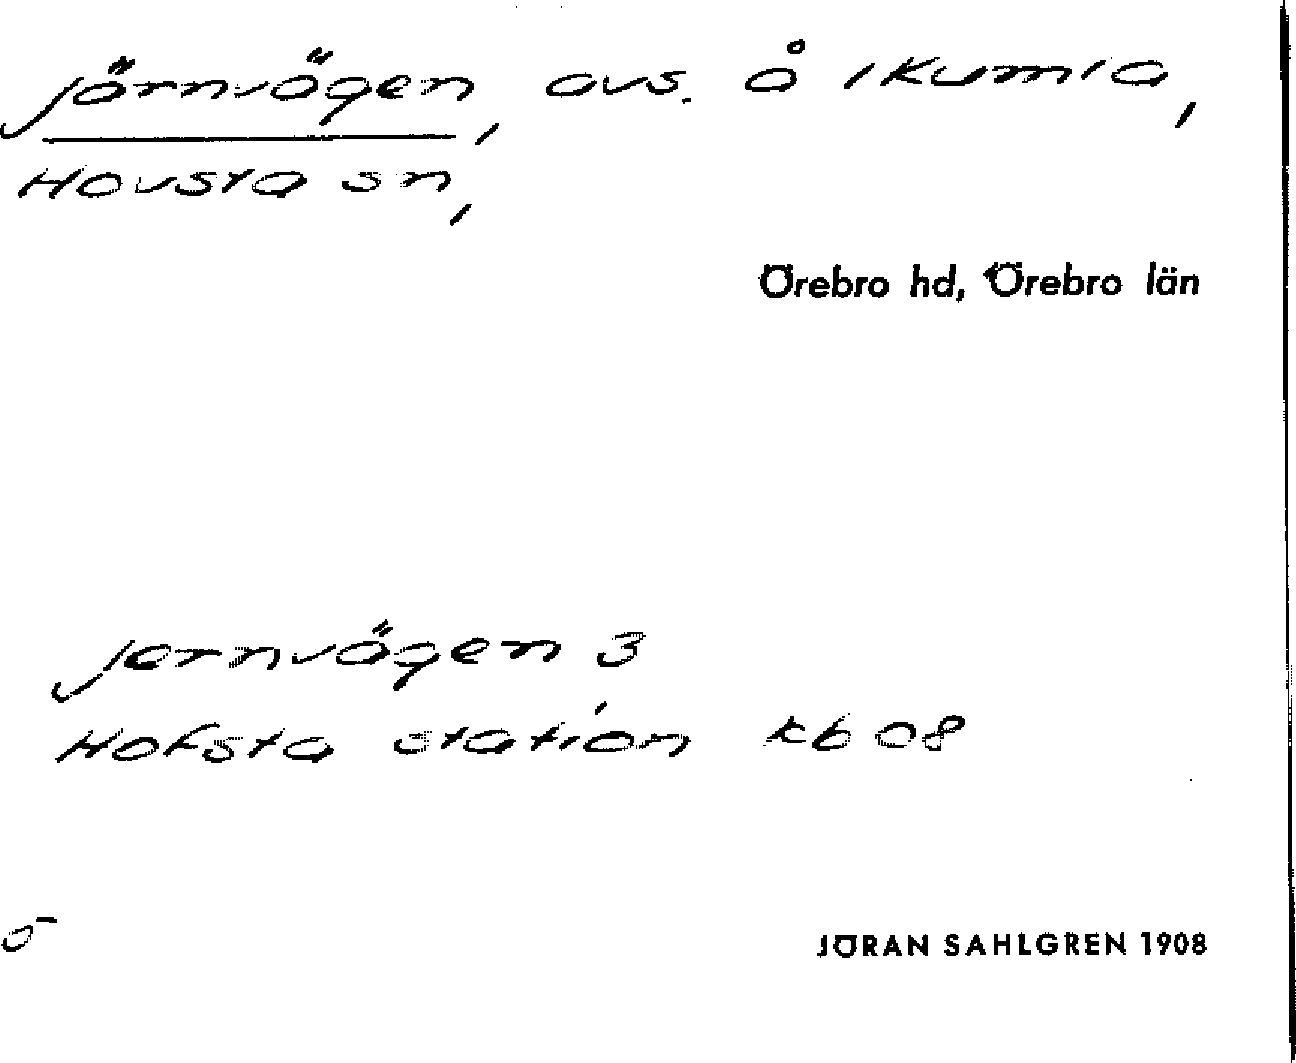 Järnvägen, avs. å Ikumla,
Hovsta sn,
Örebro hd, Örebro län
Jernvägen 3
Hofsta station kb 08
5
JÖRAN SAHLGREN 1908